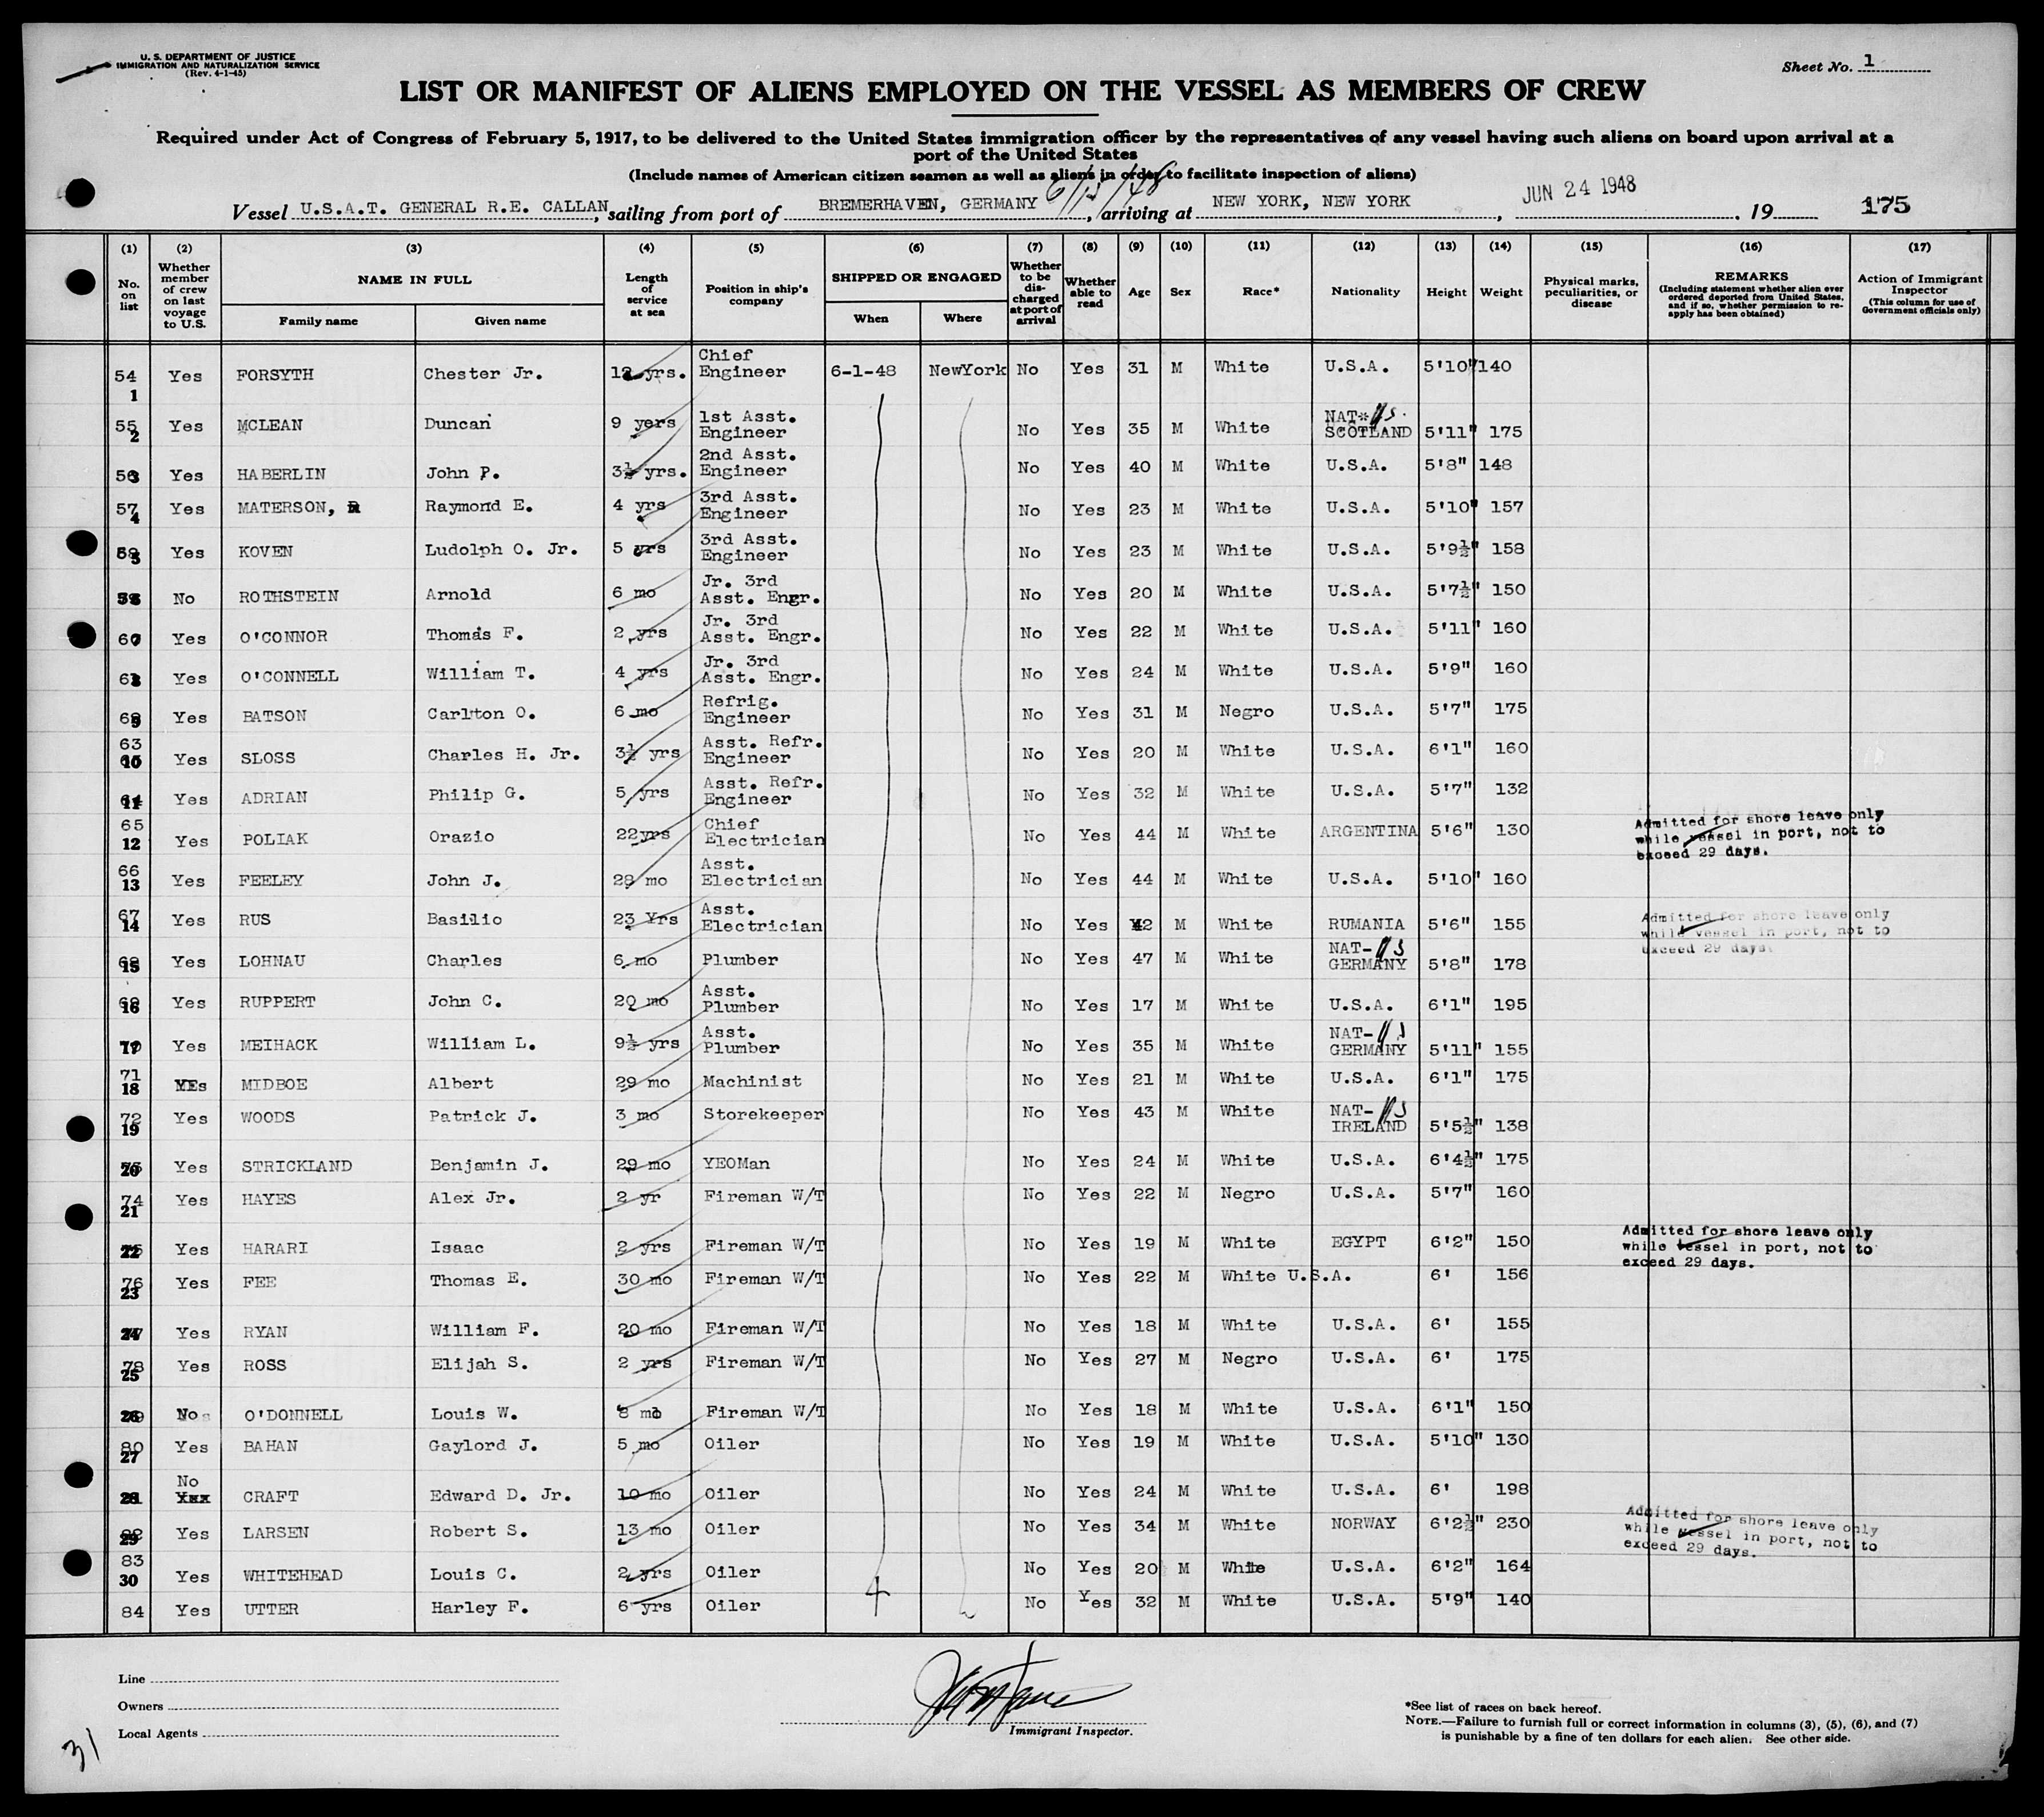 U. S. DEPARTMENT OF JUSTICE
IMMIGRATION AND NATURALIZATION SERVICE
(Rev. 4-1-45)
Sheet No. 1
LIST OR MANIFEST OF ALIENS EMPLOYED ON THE VESSEL AS MEMBERS OF CREW
Required under Act of Congress of February 5, 1917, to be delivered to the United States immigration officer by the representatives of any vessel having such aliens on board upon arrival at a
port of the United States
(Include names of American citizen seamen as well as aliens in order to facilitate inspection of aliens)
Vessel U.S.A.T. GENERAL R.E. CALLAN, sailing from port of BREMERHAVEN, GERMANY, arriving at NEW YORK, NEW YORK, JUN 24 1948, 19 175
(1) No. on list
(2) Whether member of crew on last voyage to U.S.
(3) NAME IN FULL Family name Given name
(4) Length of service at sea
(5) Position in ship's company
(6) SHIPPED OR ENGAGED When Where
(7) Whether to be discharged at port of arrival
(8) Whether able to read
(9) Age
(10) Sex
(11) Race*
(12) Nationality
(13) Height
(14) Weight
(15) Physical marks, peculiarities, or disease
(16) REMARKS (Including statement whether alien ever ordered deported from United States, and if so, whether permission to re-apply has been obtained)
(17) Action of Immigrant Inspector (This column for use of Government officials only)
54 1 Yes FORSYTH Chester Jr. 12 yrs. Chief Engineer 6-1-48 NewYork No Yes 31 M White U.S.A. 5'10" 140
55 2 Yes MCLEAN Duncan 9 yers 1st Asst. Engineer No Yes 35 M White NAT* US. SCOTLAND 5'11" 175
56 3 Yes HABERLIN John P. 3½ yrs. 2nd Asst. Engineer No Yes 40 M White U.S.A. 5'8" 148
57 4 Yes MATERSON, Raymond E. 4 yrs 3rd Asst. Engineer No Yes 23 M White U.S.A. 5'10" 157
58 5 Yes KOVEN Ludolph O. Jr. 5 yrs 3rd Asst. Engineer No Yes 23 M White U.S.A. 5'9½" 158
No ROTHSTEIN Arnold 6 mo Jr. 3rd Asst. Engr. No Yes 20 M White U.S.A. 5'7½" 150
60 7 Yes O'CONNOR Thomas F. 2 yrs Jr. 3rd Asst. Engr. No Yes 22 M White U.S.A. 5'11" 160
61 8 Yes O'CONNELL William T. 4 yrs Jr. 3rd Asst. Engr. No Yes 24 M White U.S.A. 5'9" 160
62 9 Yes BATSON Carlton O. 6 mo Refrig. Engineer No Yes 31 M Negro U.S.A. 5'7" 175
63 10 Yes SLOSS Charles H. Jr. 3½ yrs Asst. Refr. Engineer No Yes 20 M White U.S.A. 6'1" 160
64 11 Yes ADRIAN Philip G. 5 yrs Asst. Refr. Engineer No Yes 32 M White U.S.A. 5'7" 132
65 12 Yes POLIAK Orazio 22yrs Chief Electrician No Yes 44 M White ARGENTINA 5'6" 130 Admitted for shore leave only while vessel in port, not to exceed 29 days.
66 13 Yes FEELEY John J. 28 mo Asst. Electrician No Yes 44 M White U.S.A. 5'10" 160
67 14 Yes RUS Basilio 23 Yrs Asst. Electrician No Yes 42 M White RUMANIA 5'6" 155 Admitted for shore leave only while vessel in port, not to exceed 29 days.
68 15 Yes LOHNAU Charles 6 mo Plumber No Yes 47 M White NAT- US GERMANY 5'8" 178
69 16 Yes RUPPERT John C. 20 mo Asst. Plumber No Yes 17 M White U.S.A. 6'1" 195
70 17 Yes MEIHACK William L. 9½ yrs Asst. Plumber No Yes 35 M White NAT- US GERMANY 5'11" 155
71 18 YEs MIDBOE Albert 29 mo Machinist No Yes 21 M White U.S.A. 6'1" 175
72 19 Yes WOODS Patrick J. 3 mo Storekeeper No Yes 43 M White NAT- US IRELAND 5'5½" 138
73 20 Yes STRICKLAND Benjamin J. 29 mo YEOMan No Yes 24 M White U.S.A. 6'4½" 175
74 21 Yes HAYES Alex Jr. 2 yr Fireman W/T No Yes 22 M Negro U.S.A. 5'7" 160
75 22 Yes HARARI Isaac 2 yrs Fireman W/T No Yes 19 M White EGYPT 6'2" 150 Admitted for shore leave only while vessel in port, not to exceed 29 days.
76 23 Yes FEE Thomas E. 30 mo Fireman W/T No Yes 22 M White U.S.A. 6' 156
77 24 Yes RYAN William F. 20 mo Fireman W/T No Yes 18 M White U.S.A. 6' 155
78 25 Yes ROSS Elijah S. 2 yrs Fireman W/T No Yes 27 M Negro U.S.A. 6' 175
79 26 No O'DONNELL Louis W. 8 mo Fireman W/T No Yes 18 M White U.S.A. 6'1" 150
80 27 Yes BAHAN Gaylord J. 5 mo Oiler No Yes 19 M White U.S.A. 5'10" 130
81 28 No CRAFT Edward D. Jr. 10 mo Oiler No Yes 24 M White U.S.A. 6' 198
82 29 Yes LARSEN Robert S. 13 mo Oiler No Yes 34 M White NORWAY 6'2½" 230 Admitted for shore leave only while vessel in port, not to exceed 29 days.
83 30 Yes WHITEHEAD Louis C. 2 yrs Oiler No Yes 20 M White U.S.A. 6'2" 164
84 Yes UTTER Harley F. 6 yrs Oiler No Yes 32 M White U.S.A. 5'9" 140
Line
Owners
Local Agents
Immigrant Inspector.
*See list of races on back hereof.
NOTE.—Failure to furnish full or correct information in columns (3), (5), (6), and (7)
is punishable by a fine of ten dollars for each alien. See other side.
31